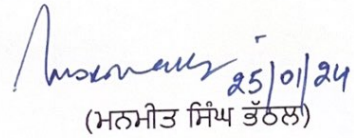 25/01/24
(ਮਨਮੀਤ ਸਿੰਘ ਭੱਠਲ)